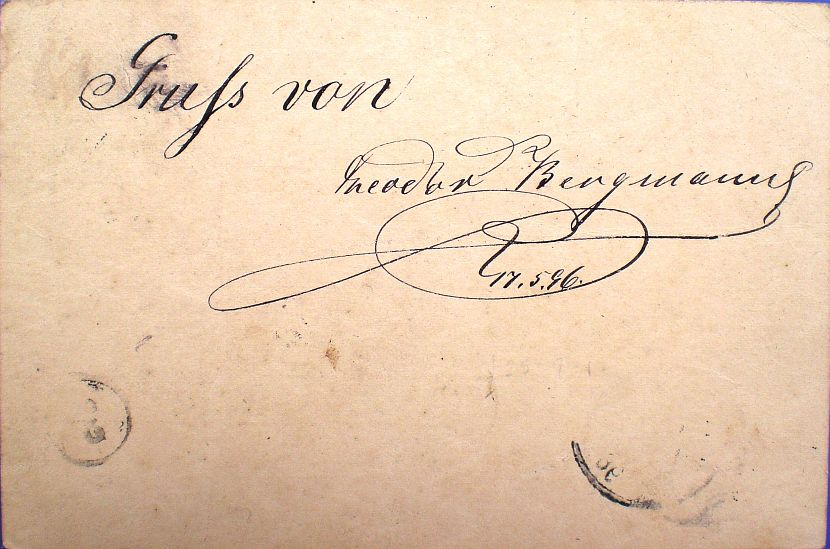 Gruss von
Theodor Bergmann
17.5.96.